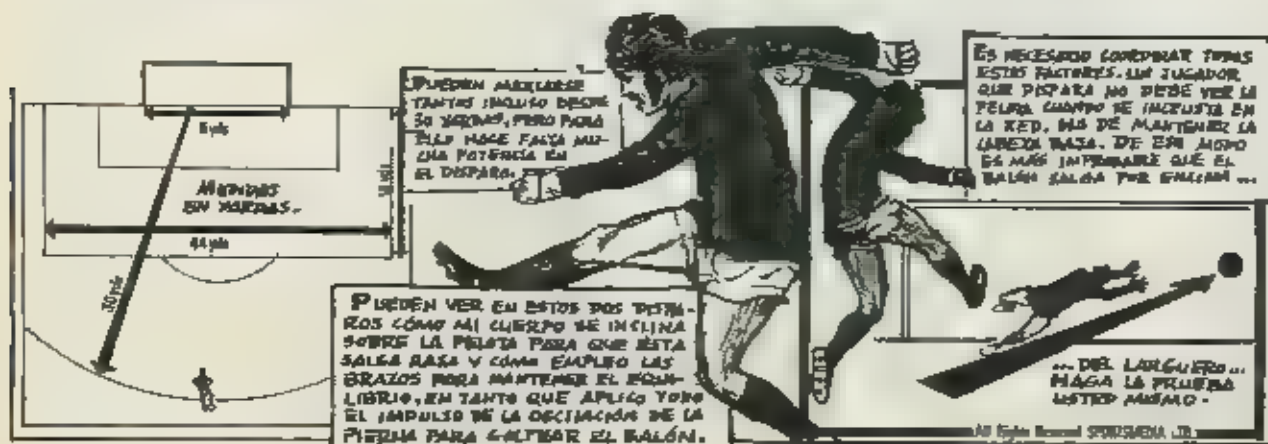 8 yds
MEDIDAS
EN YARDAS.
18 yds
44 yds
30 yds
PUEDEN MARCARSE
TANTOS INCLUSO DESDE
30 YARDAS, PERO PARA
ELLO HACE FALTA MU-
CHA POTENCIA EN
EL DISPARO.
PUEDEN VER EN ESTOS DOS DISPA-
ROS CÓMO MI CUERPO SE INCLINA
SOBRE LA PELOTA PARA QUE ESTA
SALGA RASA Y CÓMO EMPLEO LOS
BRAZOS PARA MANTENER EL EQUI-
LIBRIO, EN TANTO QUE APLICO TODO
EL IMPULSO DE LA OSCILACIÓN DE LA
PIERNA PARA GOLPEAR EL BALÓN.
ES NECESARIO COORDINAR TODOS
ESTOS FACTORES. UN JUGADOR
QUE DISPARA NO DEBE VER LA
PELOTA CUANDO SE INCRUSTA EN
LA RED. HA DE MANTENER LA
CABEZA BAJA. DE ESE MODO
ES MÁS IMPROBABLE QUE EL
BALÓN SALGA POR ENCIMA ...
... DEL LARGUERO...
HAGA LA PRUEBA
USTED MISMO.
All Rights Reserved SPORTSMEDIA LTD.